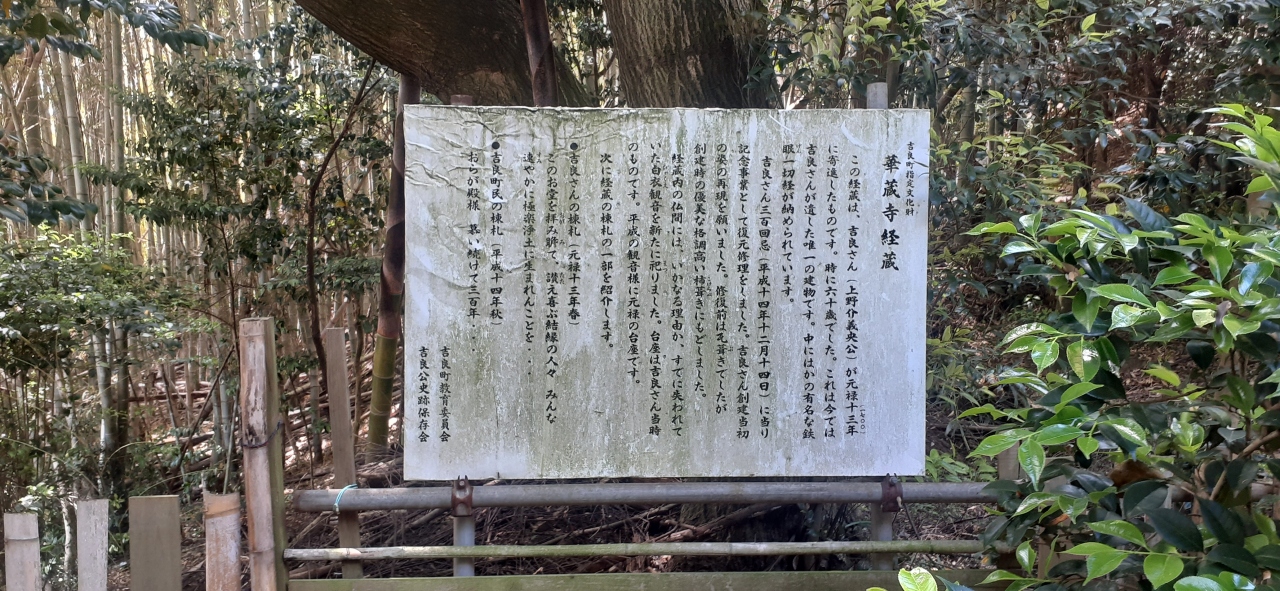 吉良町指定文化財
華蔵寺経蔵
この経蔵は、吉良さん(上野介義央公)が元禄十三年(一七〇〇)
に寄進したものです。時に六十歳でした。これは今では
吉良さんが遺した唯一の建物です。中にはかの有名な鉄
眼一切経が納められています。
吉良さん三百回忌(平成十四年十二月十四日)に当り
記念事業として復元修理をしました。吉良さん創建当初
の姿の再現を願いました。修復前は瓦葺きでしたが
創建時の優美な格調高い柿葺きにもどしました。
経蔵内の仏間には、いかなる理由か、すでに失われて
いた白衣観音を新たに祀りました。台座は吉良さん当時
のものです。平成の観音様に元禄の台座です。
次に経蔵の棟札の一部を紹介します。
●吉良さんの棟札(元禄十三年春)
このお堂を拝み眺て、讃え喜ぶ結縁の人々 みんな
速やかに極楽浄土に生まれんことを・・・
●吉良町民の棟札(平成十四年秋)
おらが殿様 慕い続けて三百年・・・
吉良町教育委員会
吉良公史跡保存会